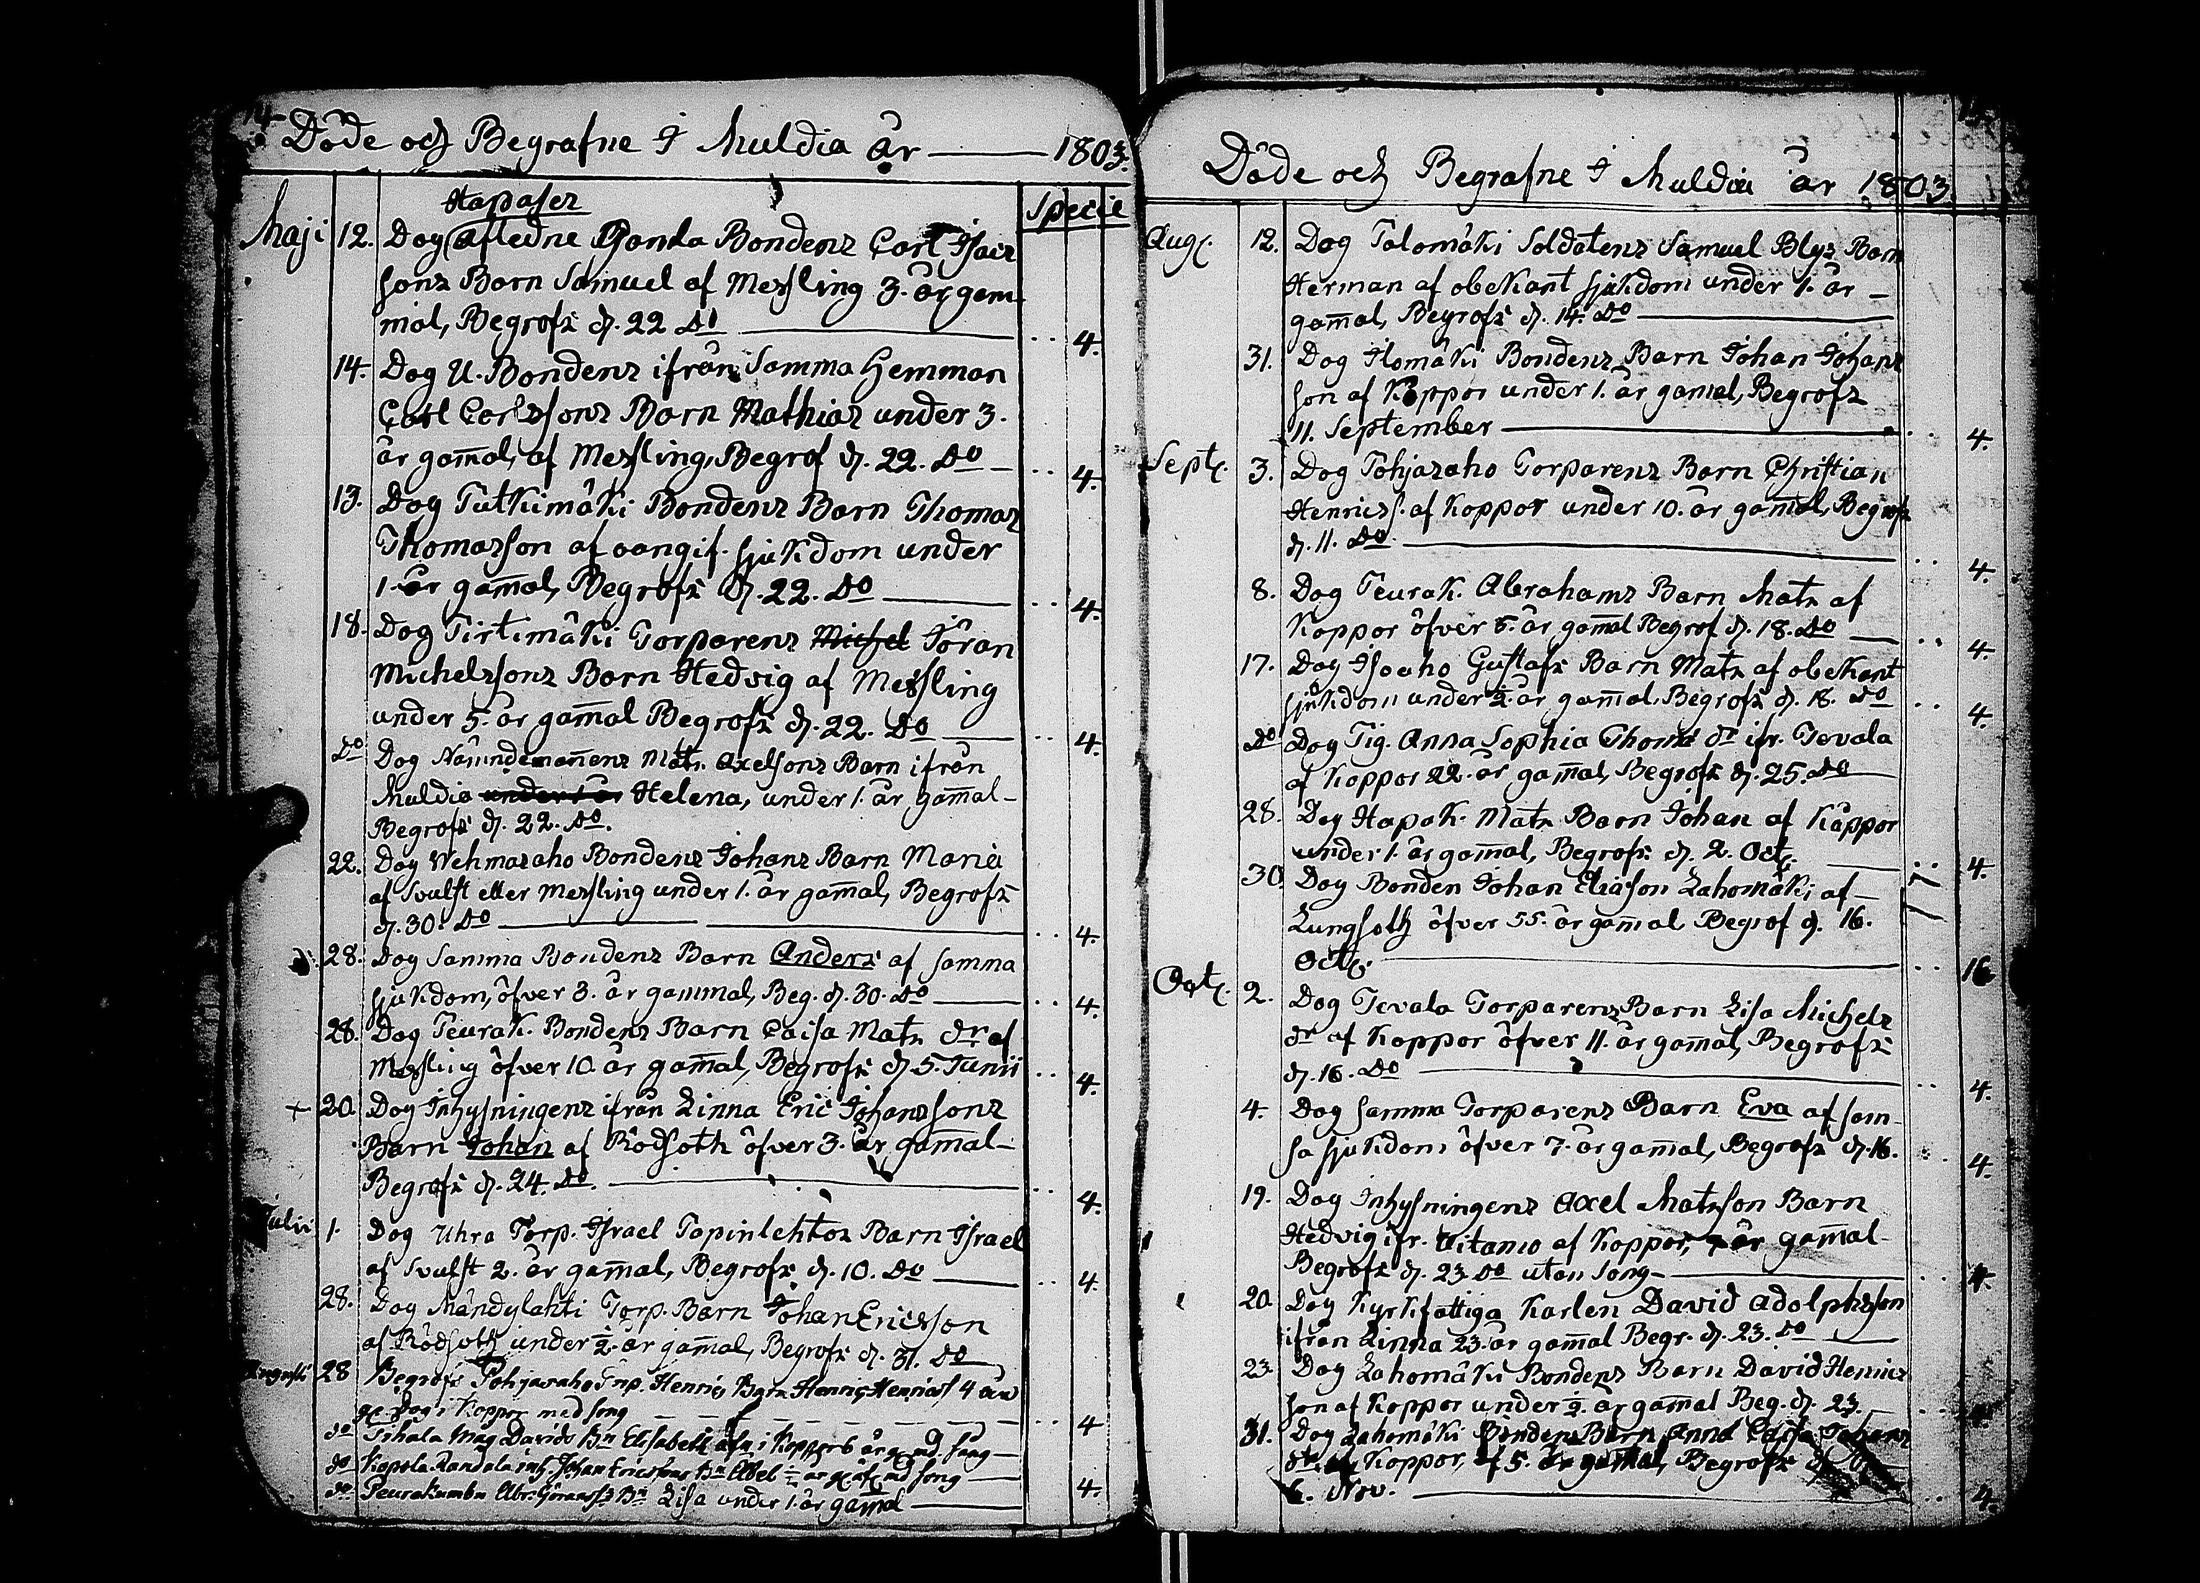 14.
Döde och Begrafne I Muldia år — 1803.
Hapasez
Specie
Maji 12. Dog Afledne Bonda Bondens Carl Isacs
sons Barn Samuel af Messling 3. år gam-
mal, Begrofs d. 22 Do — 4.
14. Dog U. Bondens ifrån Samma Hemman
Carl Carlssons Barn Mathias under 3.
år gam̄al, af Messling, Begrof d. 22. Do — 4.
13. Dog Tutkimäki Bondens Barn Thomas
Thomasson af oangif. sjukdom under
1. år gam̄al, Begrofs d. 22. Do — 4.
18. Dog Tirtimäki Torparens Michel Jöran
Michelssons Barn Hedvig af Messling
under 5. år gam̄al Begrofs d. 22. Do — 4.
Do Dog Nämndeman̄ens Mats Axelsons Barn ifrån
Muldia under 1 år Helena, under 1. år gam̄al-
Begrofs d. 22. Do.
22. Dog Wehmasaho Bondens Johans Barn Maria
af Svulst eller Messling under 1. år gam̄al, Begrofs
d. 30. Do — 4.
28. Dog Samma Bondens Barn Anders af samma
sjukdom, öfver 3. år gammal, Beg. d. 30. Do — 4.
28. Dog Teurak. Bondens Barn Caisa Mats dr af
Messling öfver 10. år gam̄al, Begrofs d. 5. Junii 4.
+ 20. Dog Inhysningens ifrån Linna Eric Johanssons
Barn Johan af Rödsoth öfver 3. år gam̄al-
Begrofs d. 24. Do. — 4.
Julii 1. Dog Uhra Torp. Israel Tapinlehtos Barn Israel
af Svulst 2. år gam̄al, Begrofs d. 10. Do — 4.
28. Dog Mändylahti Torp. Barn Johan Ericsson
af Rödsoth under ½ år gam̄al, Begrofs d. 31. Do
Augusti 28 Begrofs Pohjasaho Henrics Barn Henric Henrics 4 år
Dog i Koppor med song — 4
do Tihala Davids Bn Elisabeth i Koppor 6 år song —
do Kopola Randala inh. Johan Ericssons Bn song —
do Peurakumbu Abr. Göranss Bn Lisa under 1. år gam̄al — 4.
Döde och Begrafne I Muldia år 1803.
Aug. 12. Dog Talomäki Soldatens Samuel Blys Barn
Herman af obekant sjukdom under 1. år —
gam̄al, Begrofs d. 14. Do —
31. Dog Ilomäki Bondens Barn Johan Johans
son af Koppor under 1. år gam̄al, Begrofs
11. September — 4.
Sept. 3. Dog Pohjasaho Torparens Barn Christian
Henrics s. af Koppor under 10. år gam̄al, Begrofs
d. 11. Do. — 4.
8. Dog Teurak. Abrahams Barn Mats af
Koppor öfver 5. år gam̄al Begrof d. 18. Do — 4.
17. Dog Isoaho Gustafs Barn Mats af obekant
sjukdom under ½ år gam̄al, Begrofs d. 18. Do 4.
Do Dog Pig. Anna Sophia Thomæ dr ifr. Tevala
af Koppor 22. år gam̄al, Begrofs d. 25. Do —
28. Dog Hapak. Mats Barn Johan af Koppor
under 1. år gam̄al, Begrofs d. 2. Oct. — 4.
30. Dog Bonden Johan Eliason Lahomäki af—
Lungsoth öfver 55. år gam̄al Begrof d. 16.
Oct. — 16
Oct. 2. Dog Tevala Torparens Barn Lisa Michels
dr af Koppor öfver 11. år gam̄al, Begrofs
d. 16. Do — 4.
4. Dog samma Torparens Barn Eva af sam-
ma sjukdom öfver 7. år gam̄al, Begrofs d. 16. 4.
19. Dog Inhysningens Axel Matsson Barn
Hedvig ifr. Uitamo af Koppor, år gam̄al-
Begrofs d. 23. Do utan song — 4.
20. Dog Kyrkfattiga Karlen David Adolphsson
ifrån Linna 23. år gam̄al Begr. d. 23. Do —
23. Dog Lahomäki Bondens Barn David Henrics
son af Koppor under ½ år gam̄al Beg. d. 23. — 4.
31. Dog Lahomäki Bondens Barn Anna Caisa Johans
dr Koppor, 5. år gam̄al, Begrofs d.
6. Nov. — 4.